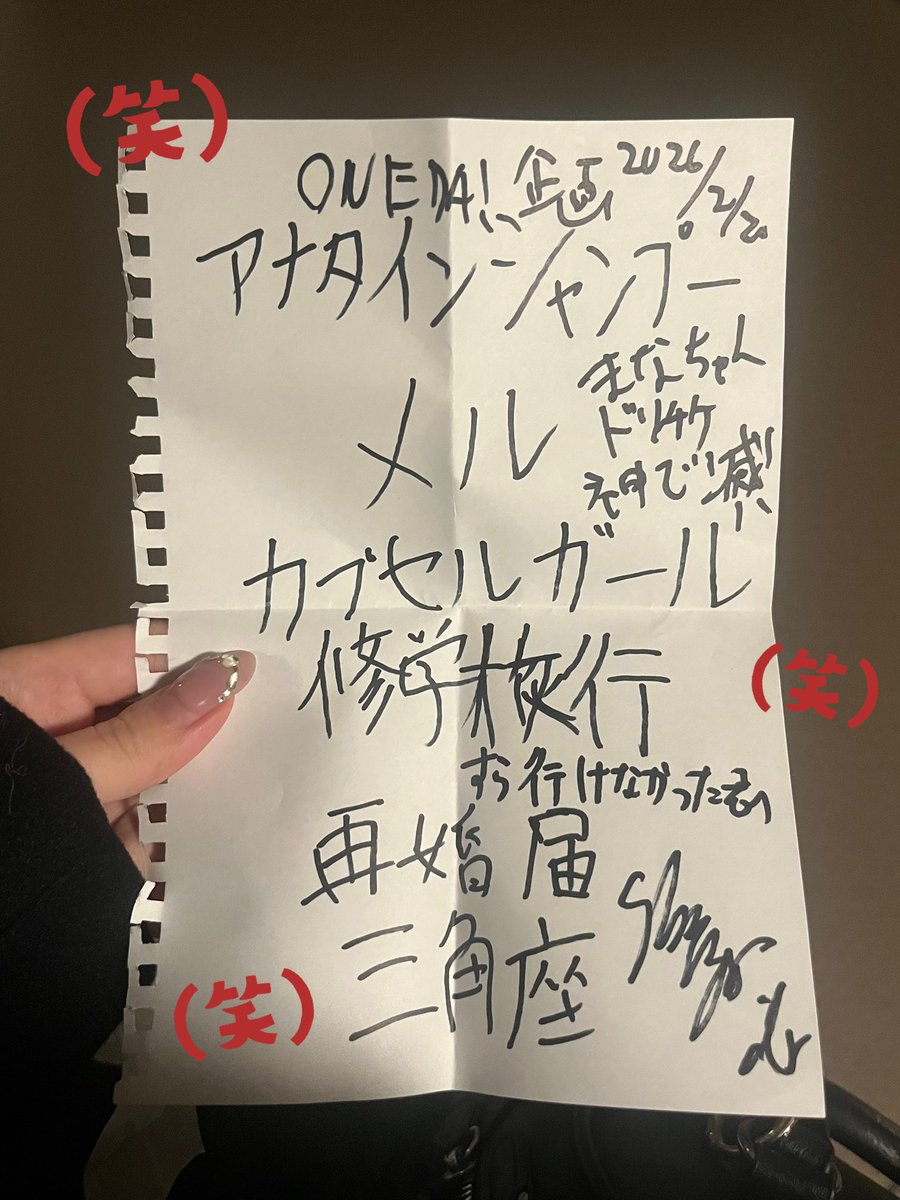 (笑)
ONE DA!! 企画 2026/2/20
アナタインシャンプー
まなちゃん
メル
ドリチケ
神で
カプセルガール
修学旅行
(笑)
すら行けなかった
再婚届
三角座
(笑)